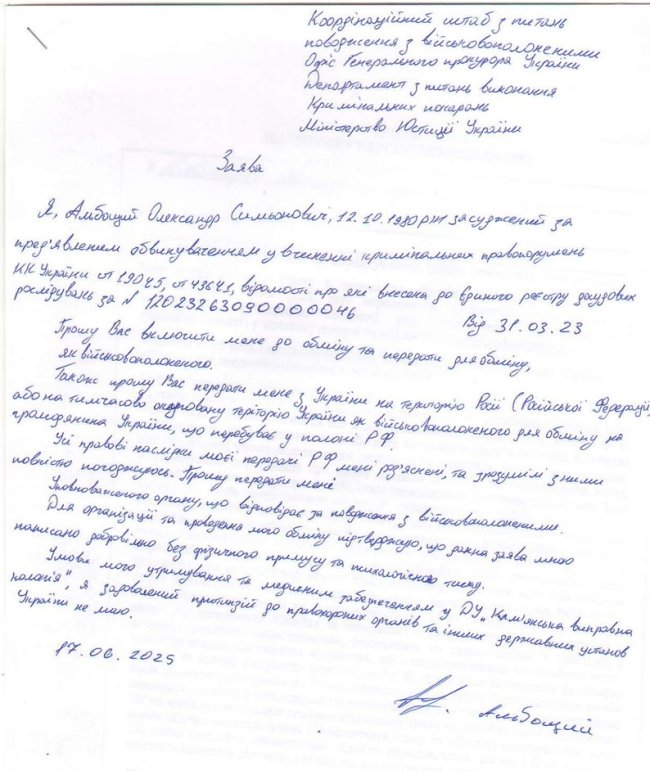 Координаційний штаб з питань
поводження з військовополоненими
Офіс Генерального прокурора України
Департамент з питань виконання
Кримінальних покарань
Міністерство Юстиції України
Заява
Я, Альбощий Олександр Симьонович, 12.10.1980 рж засуджений за
пред'явленим обвинуваченням у вчиненні кримінальних правопорушень
КК України ст 190ч5, ст 436ч1, відомості про які внесена до Єдиного реєстру досудових
розслідувань за № 12023263090000046 Від 31.03.23
Прошу Вас включити мене до обміну та передати для обміну,
як військовополоненого.
Також прошу Вас передати мене з України на територію Росії (Російської Федерації)
або на тимчасово окуповану територію України як військовополоненого для обміну на
громадянина України, що перебуває у полоні РФ.
Усі правові наслідки моєї передачі РФ мені роз'яснені, та зрозумілі з ними
повністю погоджуюсь. Прошу передати мене
Уповноваженого органу, що відповідає за поводження з військовополоненими.
Для організації та проведення мого обміну підтверджую, що дана заява мною
написано добровільно без фізичного примусу та психологічного тиску.
Умови мого утримування та медичним забезпеченням у ДУ „Кам'янська виправна
колонія", я задоволений притнзій до правохороних органів та інших державних установ
України не маю.
17.06.2025
Альбощий